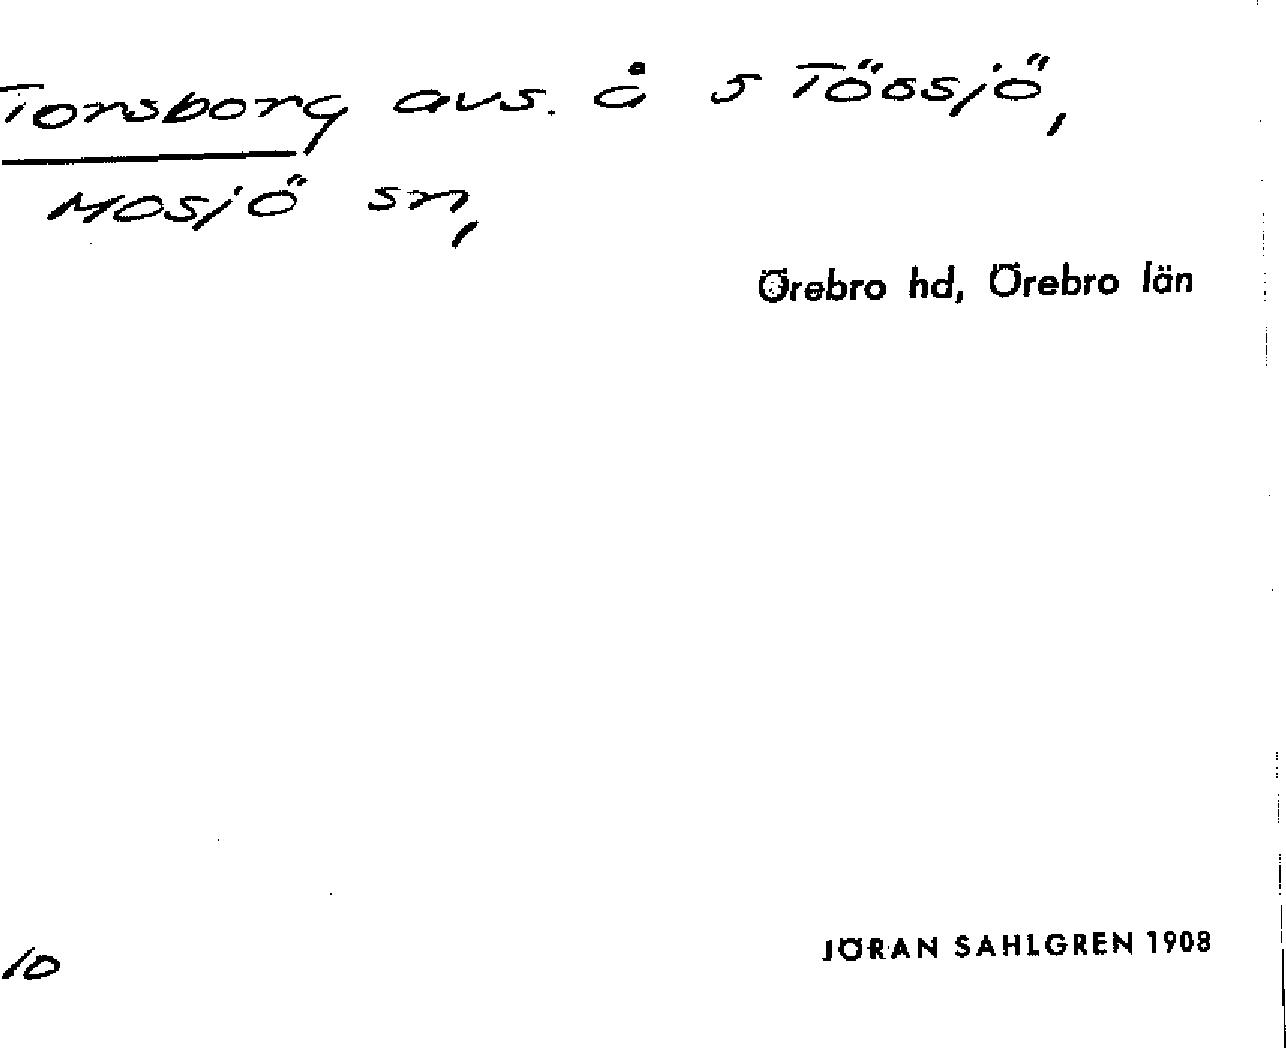 Torsborg avs. å S Tössjö,
Mosjö sn,
Örebro hd, Örebro län
JÖRAN SAHLGREN 1908
10